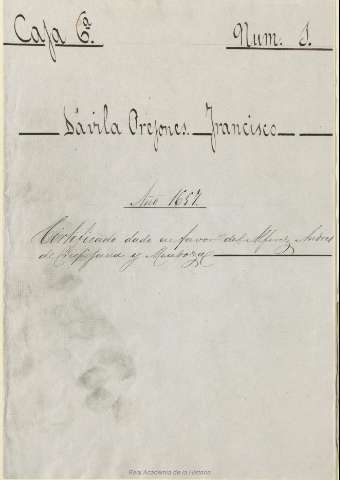 Caja 6ª.
Num. 1.
Dávila Orejones. Francisco
Año 1657.
Certificado dado en favor del Alferez Andres
de y Mendoza
Real Academia de la Historia